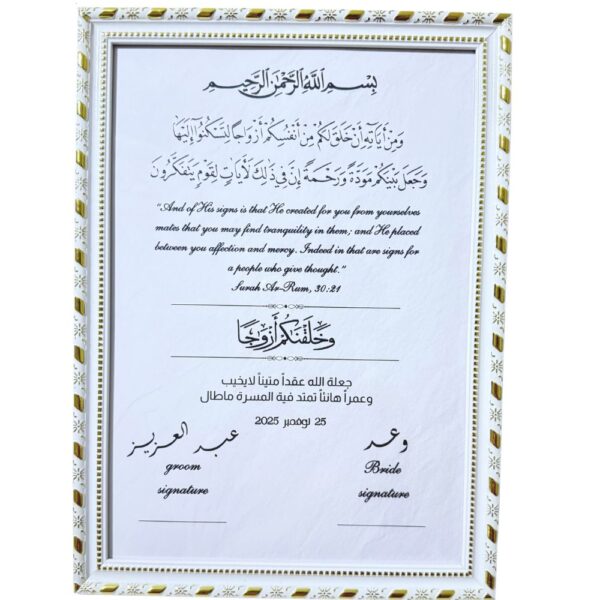 بِسْمِ اللَّهِ الرَّحْمَٰنِ الرَّحِيمِ
وَمِنْ آيَاتِهِ أَنْ خَلَقَ لَكُمْ مِنْ أَنْفُسِكُمْ أَزْوَاجًا لِتَسْكُنُوا إِلَيْهَا
وَجَعَلَ بَيْنَكُمْ مَوَدَّةً وَرَحْمَةً إِنَّ فِي ذَلِكَ لَآيَاتٍ لِقَوْمٍ يَتَفَكَّرُونَ
"And of His signs is that He created for you from yourselves
mates that you may find tranquility in them; and He placed
between you affection and mercy. Indeed in that are signs for
a people who give thought."
Surah Ar-Rum, 30:21
وَخَلَقْنَاكُمْ أَزْوَاجًا
جعلة الله عقداً متيناً لايخيب
وعمراً هانئاً تمتد فية المسرة ماطال
25 نوفمبر 2025
عبد العزيز
وعد
groom
Bride
signature
signature